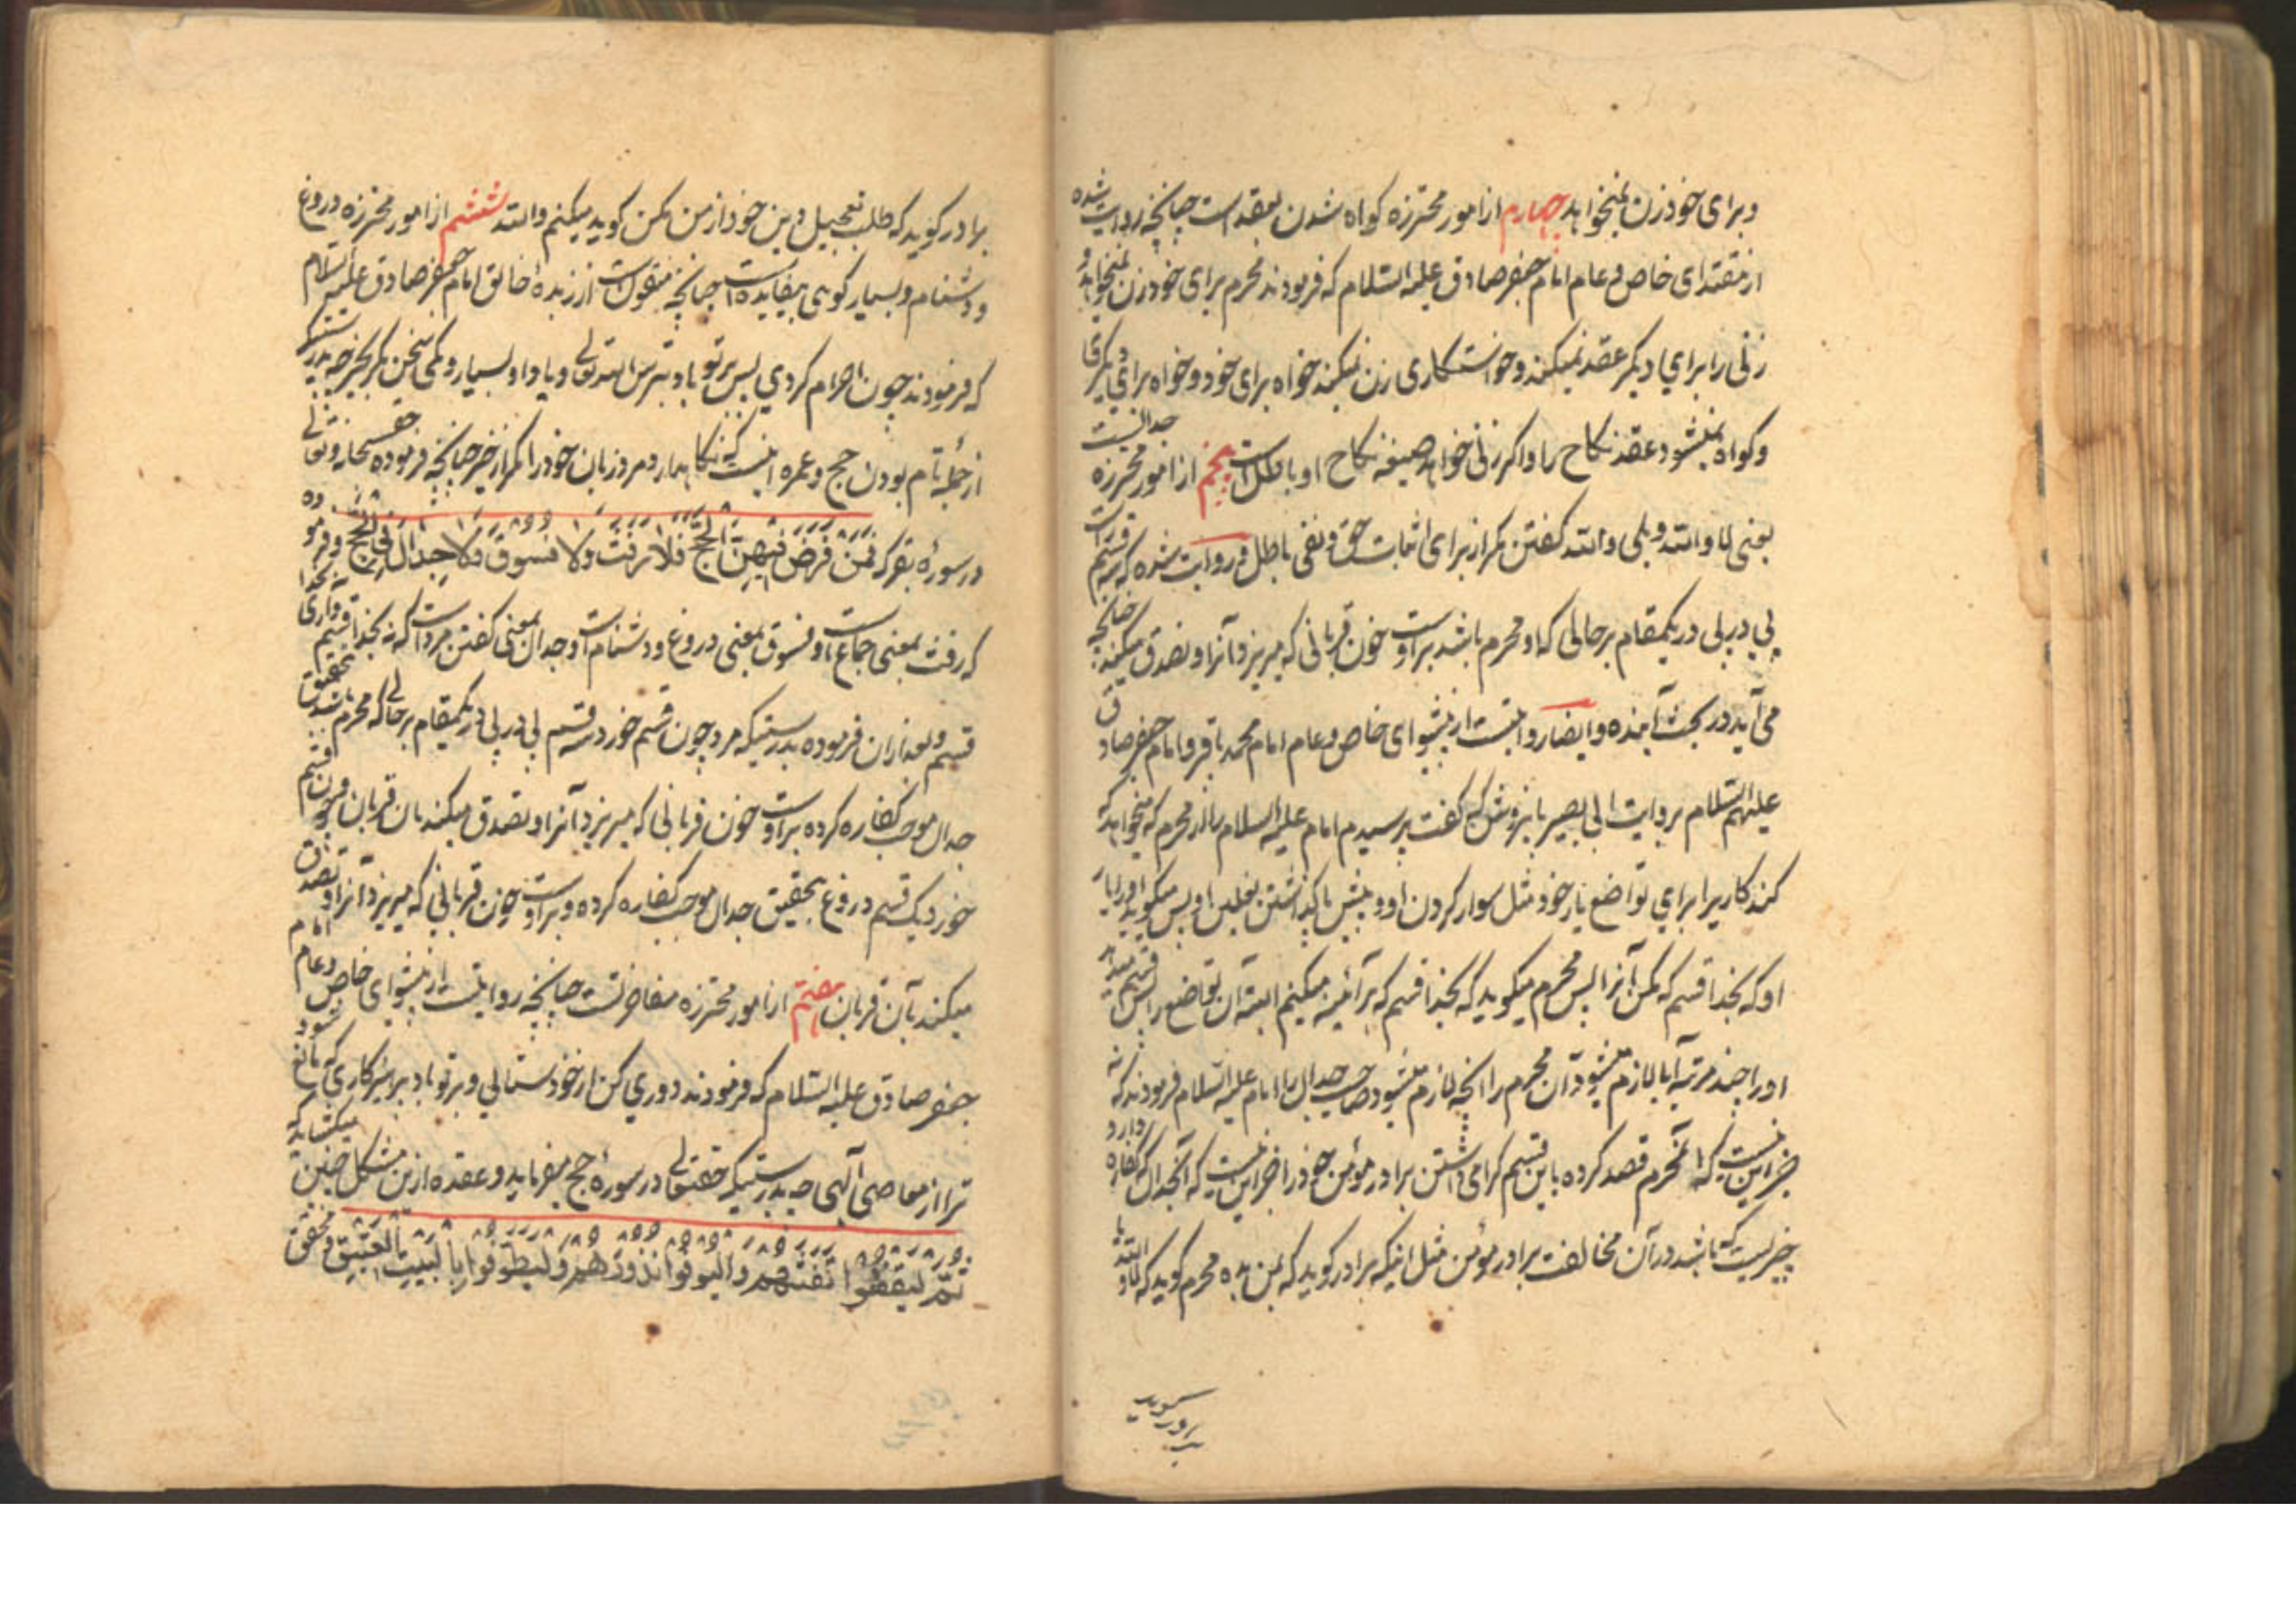 وبرای خود زن نمیخواهد چهارم از امور محترزه کواه شدن بعقد است چنانچه روایت شده
از مقتدای خاص و عام امام جعفر صادق علیه السلام که فرمودند محرم برای خود زن نمیخواهد و
زنی را برای دیکر عقد نمیکند و خواستکاری زن نمیکند خواه برای خود و خواه برای دیکری
وکواه نمیشود عقد نکاح را و اکر زنی خواهد صیغه نکاح او باطل است پنجم از امور محترزه جدالست
یعنی لا والله و بلی والله کفتن مکرر از برای اثبات حق و نفی باطل و روایت شده که سه قسم است
پی در پی در یکمقام برحالی که او محرم باشد براوست خون قربانی که میریزد آنرا و تصدق میکند چنانچه
می آید در بحث آینده و ایضا روایتست از پیشوای خاص و عام امام محمد باقر و امام جعفر صادق
علیهم السلام بروایت ابی بصیر کفت پرسیدم امام علیه السلام را از محرم که میخواهد که
کند کاریرا برای تواضع یار خود مثل سوار کردن او و پیش پا کذاشتن نعلین او پس میکوید او را یار
او که بخدا قسم که مکن آنرا پس محرم میکوید که بخدا قسم که هر آئینه میکنم البته آن تواضع را پس قسم میدهد
او را چند مرتبه آیا لازم میشود آن محرم را آنچه لازم میشود صاحب جدال را امام علیه السلام فرمودند که نه
جز این نیست که آنمحرم قصد کرده باین قسم کرامی داشتن برادر مؤمن خود را جز این نیست که آنجدال که کفاره دارد
چیزیست که باشد در آن مخالفت برادر مؤمن مثل اینکه برادر کوید که بمن بده محرم کوید که لا والله یا
برادر کوید
برادر کوید که طلب تعجیل دین خود از من مکن کوید میکنم والله ششم از امور محترزه دروغ
و دشنام و بسیار کوی بیفایده است چنانچه منقولست از زبده خالق امام جعفر صادق علیه السلام
که فرمودند چون احرام کردی پس بر تو باد بترس الله تعالی و یاد او بسیار و کمی سخن مکر بخیر چه بدرستیکه
از جمله تام بودن حج و عمره اینست که نکاهدارد مرد زبان خود را مکر از خیر چنانچه فرموده حق سبحانه وتعالی
در سوره بقر که فَمَنْ فَرَضَ فِيهِنَّ الْحَجَّ فَلَا رَفَثَ وَلَا فُسُوقَ وَلَا جِدَالَ فِي الْحَجِّ و فرموده
که رفث بمعنی جماع است و فسوق بمعنی دروغ و دشنام است و جدال بمعنی کفتن مرد است که نه بخدا قسم و آری بخدا
قسم و بعد از ان فرموده بدرستیکه مرد چون قسم خورد سه قسم پی در پی در یکمقام برحالی که محرم باشد بتحقیق
جدال موجب کفاره کرده براوست خون قربانی که میریزد آنرا و تصدق میکند بان قربان و چون قسم
خورد یک قسم دروغ بتحقیق جدال موجب کفاره کرده و براوست خون قربانی که میریزد آنرا و تصدق
میکند بآن قربان هفتم از امور محترزه مفاخرتست چنانچه روایتست از پیشوای خاص و عام امام
جعفر صادق علیه السلام که فرمودند دوری کن از خودستائی و بر تو باد بپرهیزکاری که مانع شود
ترا از معاصی الهی چه بدرستیکه حقتعالی در سوره حج میفرماید و عقده ازین مشکل چنین میکشاید که
ثُمَّ لْيَقْضُوا تَفَثَهُمْ وَالْيُوفُوا نُذُورَهُمْ وَلْيَطَّوَّفُوا بِالْبَيْتِ الْعَتِيقِ و تحقیق